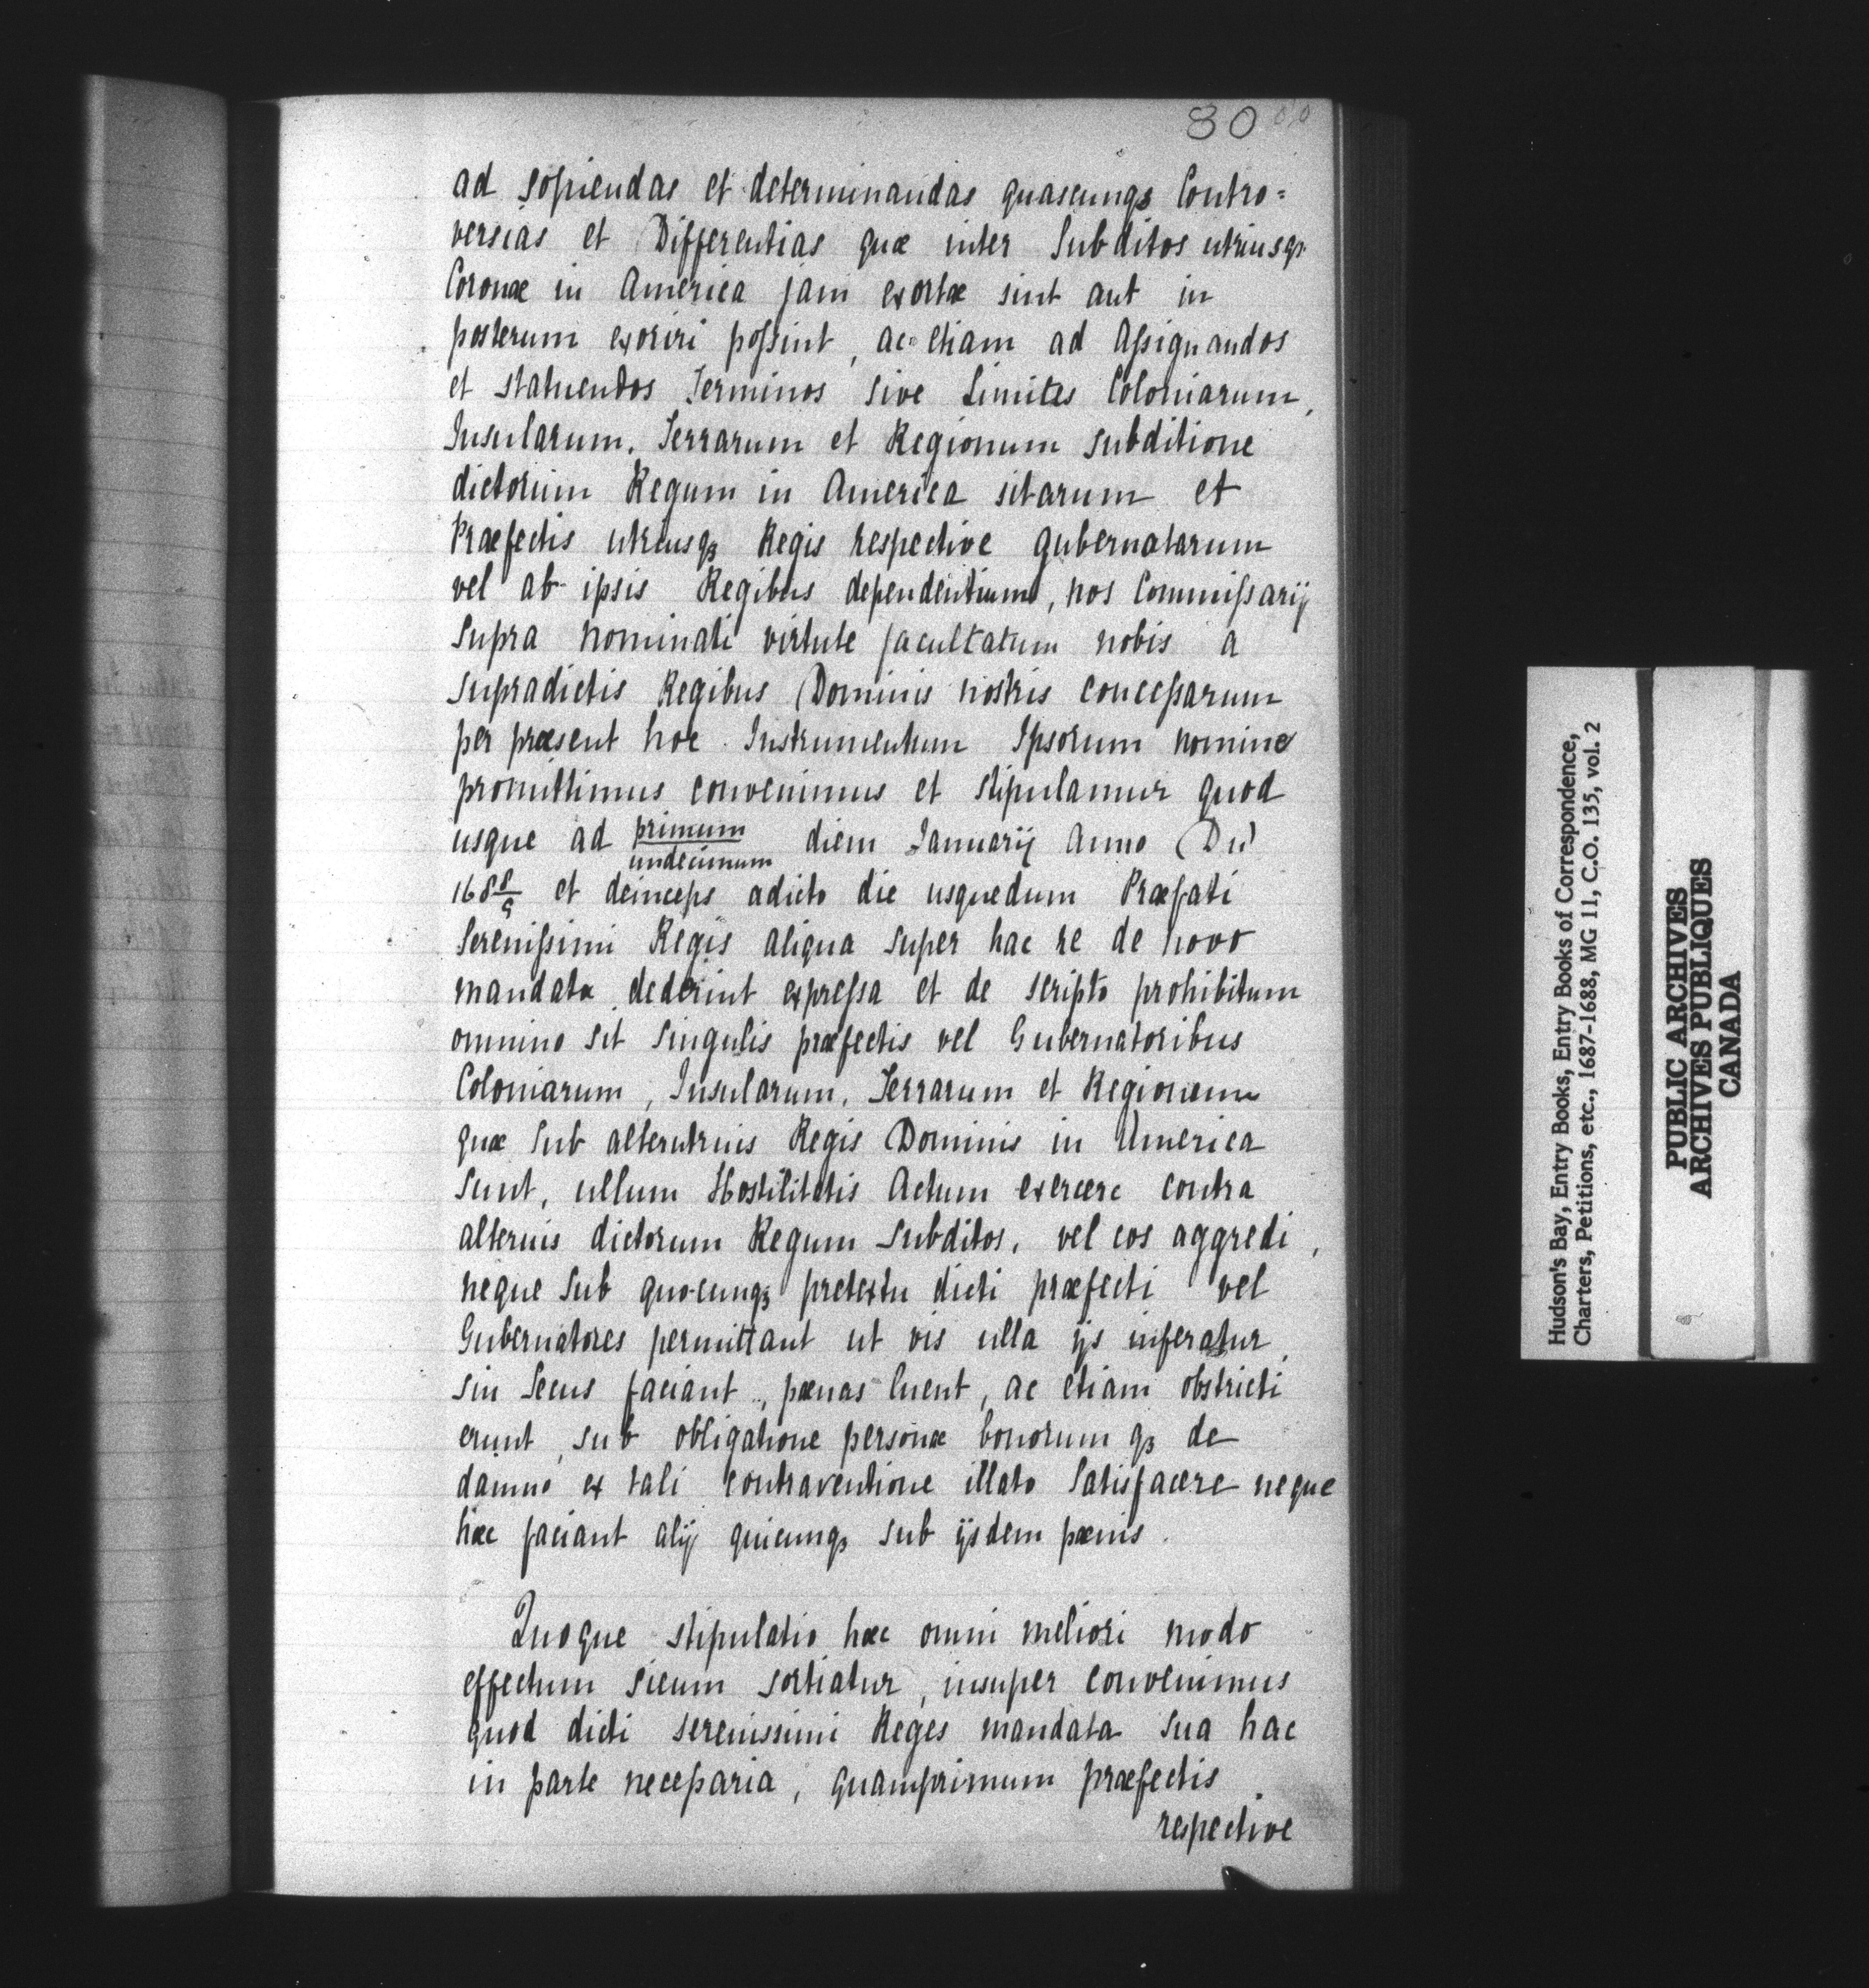 80
ad sopiendas et determinandas quascunqꝫ Contro=
versias et Differentias quæ inter Subditos utriusqꝫ
Coronæ in America jam exortæ sint aut in
posterum exoriri poſsint, ac etiam ad Aſsignandos
et statuendos Terminos sive Limites Coloniarum,
Insularum, Terrarum et Regionum subditione
dictorum Regum in America sitarum et
Præfectis utriusqꝫ Regis respective gubernatarum
vel ab ipsis Regibus dependentium, nos Commiſsarij
Supra nominati virtute facultatum nobis a
supradictis Regibus Dominis nostris conceſsarum
per præsent hoc Instrumentum Ipsorum nomine
promittimus convenimus et stipulamur quod
usque ad primum/undecimum diem Januarij Anno Dni
168 8/9 et deinceps adicto die usquedum Præfati
Sereniſsimi Regis aliqua super hac re de novo
mandata dederint expreſsa et de scripto prohibitum
omnino sit singulis præfectis vel Gubernatoribus
Coloniarum, Insularum, Terrarum et Regionum
quæ sub alterutrius Regis Dominis in America
sunt, ullum Hostilitatis Actum exercere contra
alterius dictorum Regum Subditos, vel eos aggredi,
neque sub quocunqꝫ pretextu dicti præfecti vel
Gubernatores permittant ut vis ulla ijs inferatur,
sin Secus faciant, pænas luent, ac etiam obstricti
erunt, sub obligatione personæ bonorum qꝫ de
damno ex tali contraventione illato Satisfacere neque
hæc faciant alij quicunqꝫ sub ijsdem pænis.
Quoque stipulatio hæc omni meliori modo
effectum sicum sortiatur, insuper convenimus
quod dicti serenissimi Reges mandata sua hac
in parte neceſsaria, quamprimum præfectis
respective
Hudson's Bay, Entry Books, Entry Books of Correspondence,
Charters, Petitions, etc., 1687-1688, MG 11, C.O. 135, vol. 2
PUBLIC ARCHIVES
ARCHIVES PUBLIQUES
CANADA